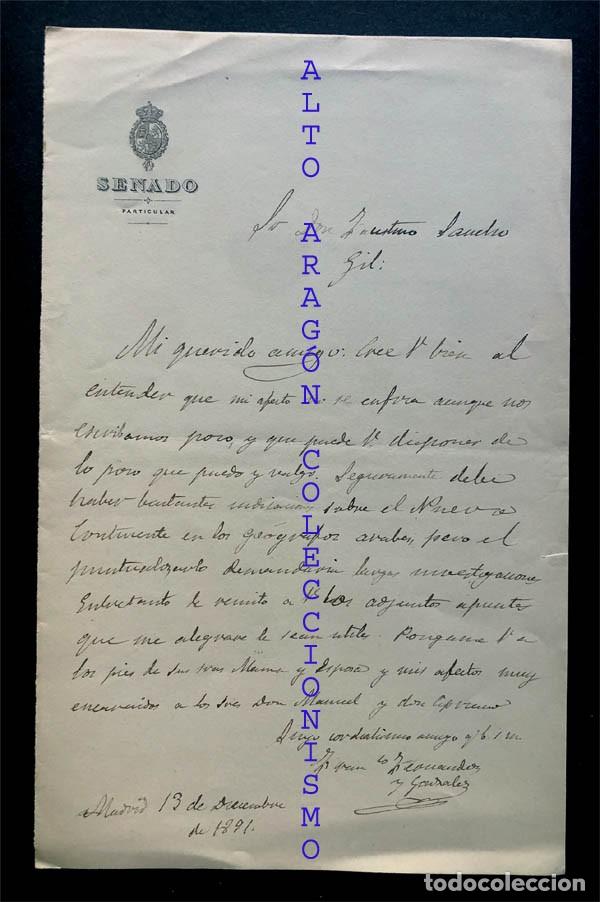 SENADO
PARTICULAR
Sr Don Faustino Sancho
Gil:
Mi querido amigo: Cree Vd bien al
entender que mi afecto no se enfria aunque nos
escribamos poco, y que puede Vd disponer de
lo poco que puedo y valgo. Seguramente debe
haber bastantes indicaciones sobre el Nuevo
Continente en los geógrafos arabes, pero el
puntualizarlo demandaria largas investigaciones
Entretanto le remito a Vd los adjuntos apuntes
que me alegrare le sean utiles. Pongame Vd a
los pies de sus sras Mama y Esposa y mis afectos muy
encarecidos a los Sres Don Manuel y don Cipriano
Suyo cordialisimo amigo q b s m
Franco Fernandez
y Gonzalez
Madrid 13 de Diciembre
de 1891.
ALTO ARAGÓN COLECCIONISMO
todocoleccion